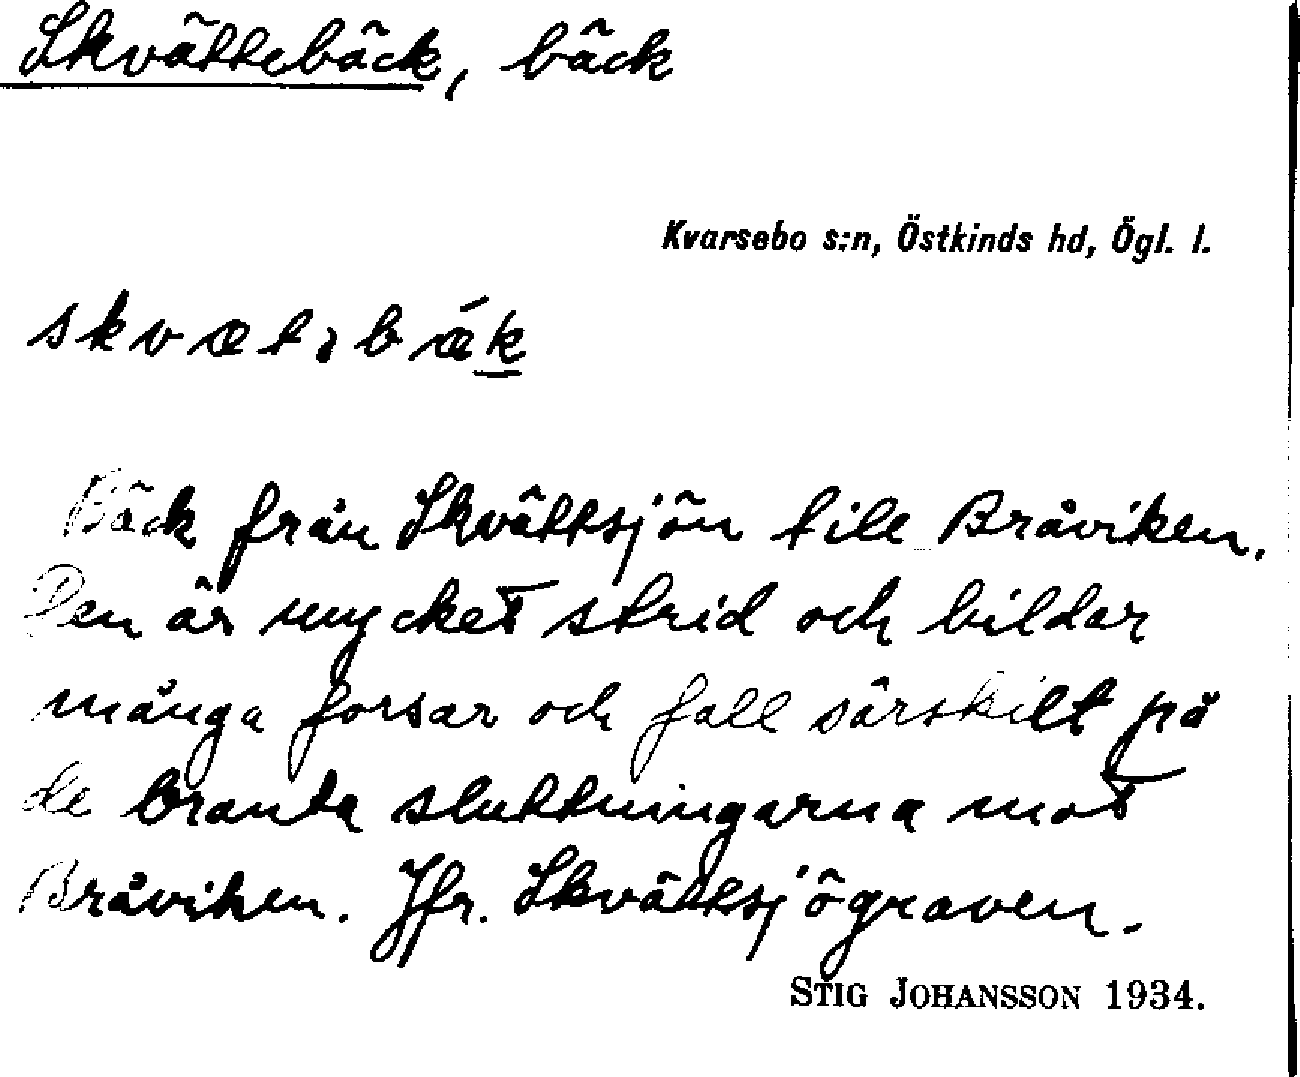 Skvättebäck, bäck
Kvarsebo s:n, Östkinds hd, Ögl. l.
skvætəbǽk
Bäck från Skvättsjön till Bråviken.
Den är mycket strid och bildar
många forsar och fall särskilt på
de branta sluttningarna mot
Bråviken. Jfr. Skvättsjögraven.
STIG JOHANSSON 1934.